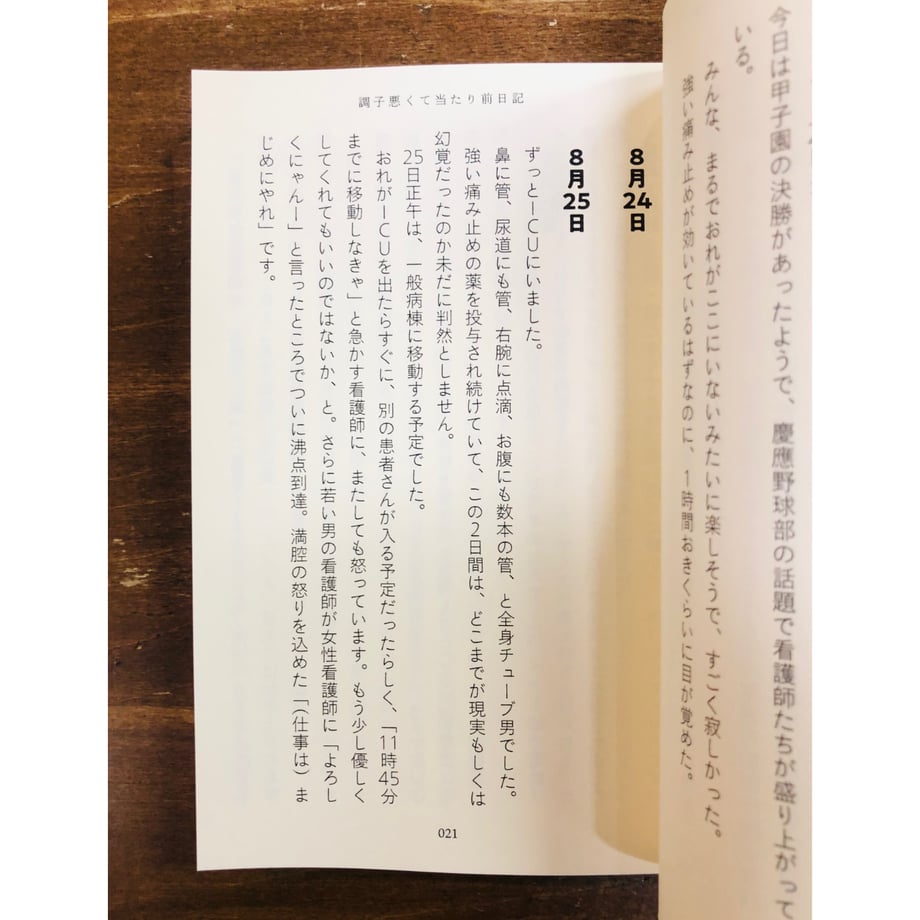 今日は甲子園の決勝があったようで、慶應野球部の話題で看護師たちが盛り上がって
いる。
みんな、まるでおれがここにいないみたいに楽しそうで、すごく寂しかった。
強い痛み止めが効いているはずなのに、1時間おきくらいに目が覚めた。
調子悪くて当たり前日記
8月24日
8月25日
ずっとICUにいました。
鼻に管、尿道にも管、右腕に点滴、お腹にも数本の管、と全身チューブ男でした。
強い痛み止めの薬を投与され続けていて、この2日間は、どこまでが現実もしくは
幻覚だったのか未だに判然としません。
25日正午は、一般病棟に移動する予定でした。
おれがICUを出たらすぐに、別の患者さんが入る予定だったらしく、「11時45分
までに移動しなきゃ」と急かす看護師に、またしても怒っています。もう少し優しく
してくれてもいいのではないか、と。さらに若い男の看護師が女性看護師に「よろし
くにゃんー」と言ったところでついに沸点到達。満腔の怒りを込めた「(仕事は)ま
じめにやれ」です。
021